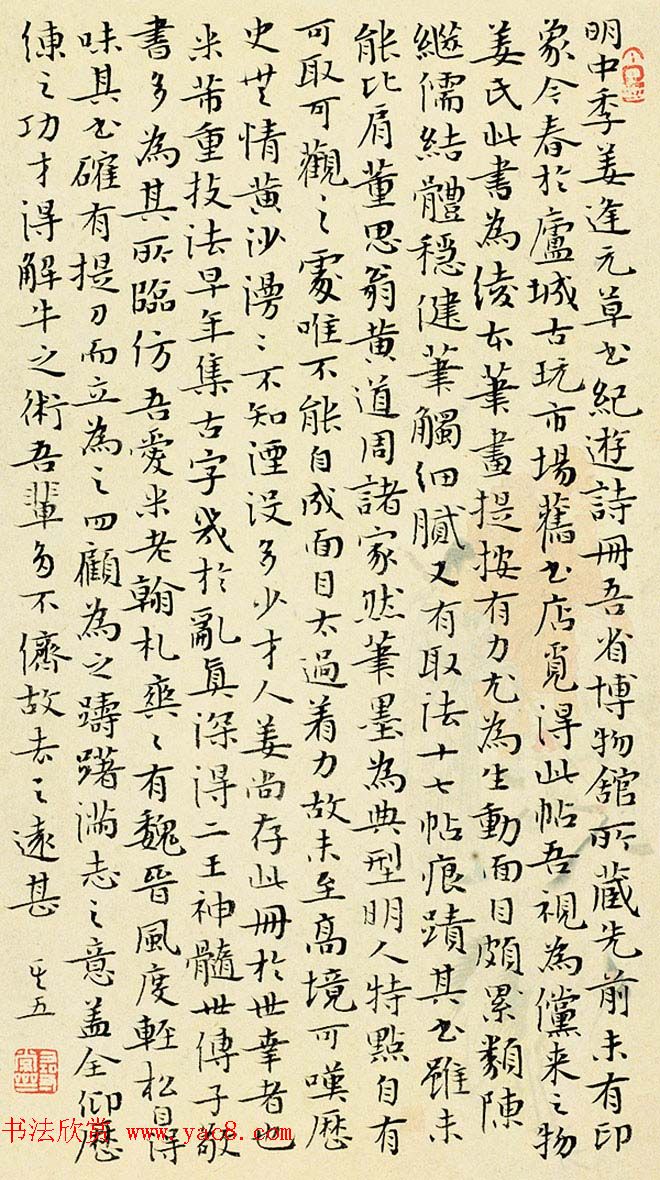 明中季姜逢元草书紀遊詩冊吾省博物館所蔵先前未有印
象今春於廬城古玩市場舊书店覓得此帖吾視為儻来之物
姜氏此書為綾本筆畫提按有力尤為生動面目頗累類陳
繼儒結體穩健筆觸细膩又有取法十七帖痕蹟其书雖未
能比肩董思翁黄道周諸家然筆墨為典型明人特點自有
可取可觀之處唯不能自成面目太過着力故未至高境可嘆歷
史無情黄沙漫〻不知湮没多少才人姜尚存此冊於世幸者也
米芾重技法早年集古字幾於亂真深得二王神髓世傳子敬
書多為其所臨仿吾愛米老翰札奕〻有魏晉風度輕松自得
味其书確有提刀而立為之四顧為之躊躇滿志之意蓋全仰歷
練之功才得解牛之術吾輩多不儕故去之遠甚
书法欣赏 www.yac8.com